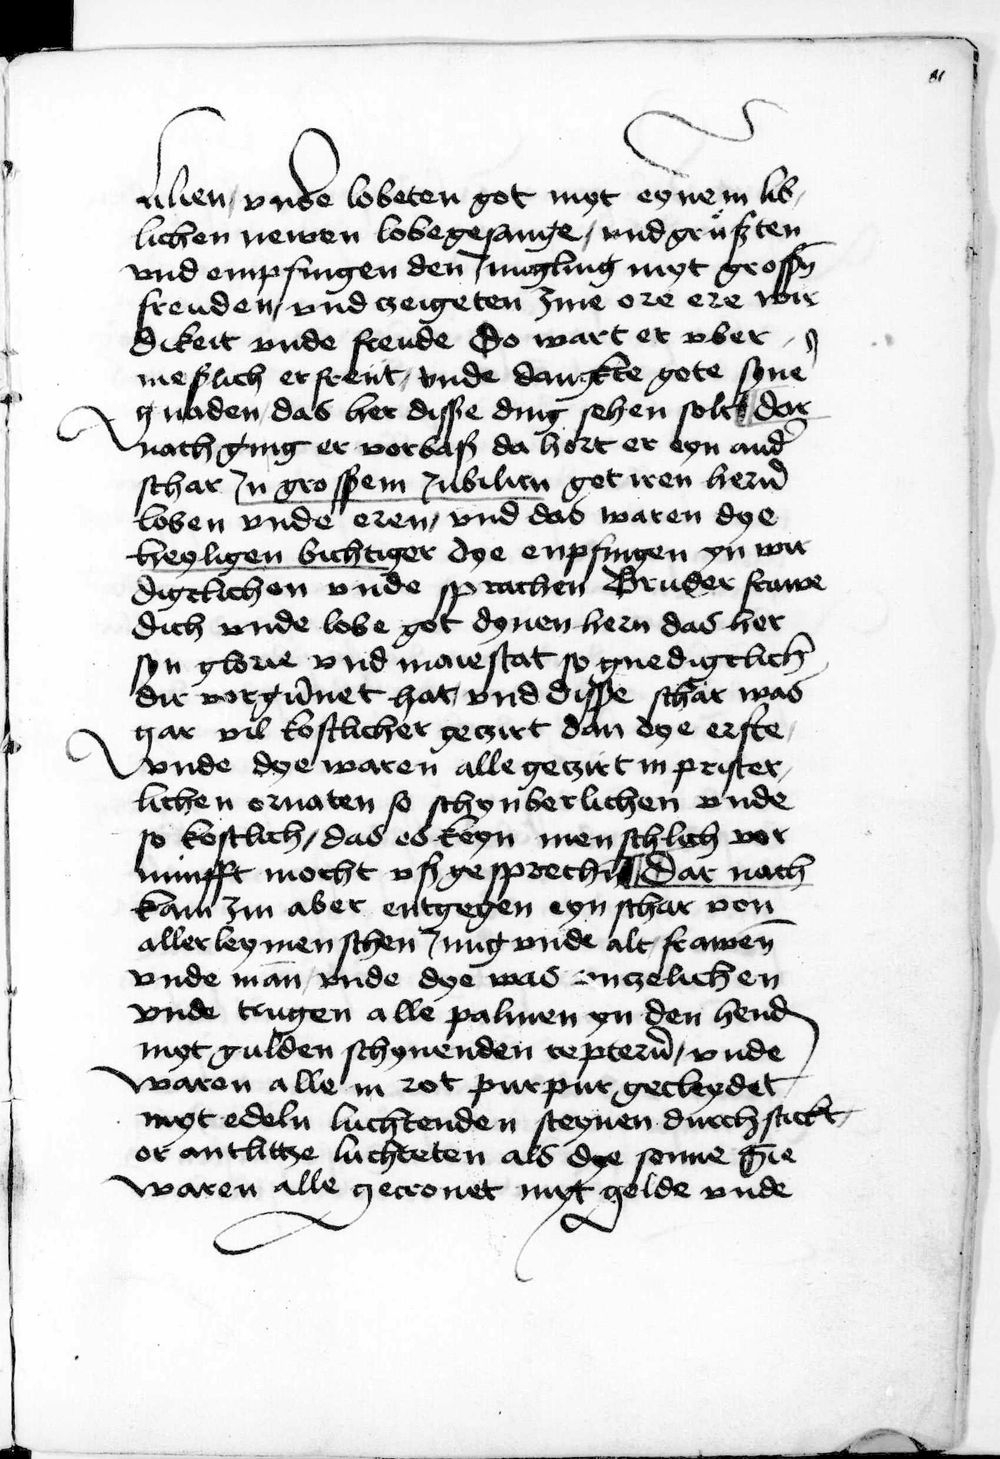 81
lilien / vnde lobeten got myt eynem lib-
lichen newen lobegesange / vnd grüßten
vnd empfingen den Jungling myt grossen
freuden / vnd czeigeten Jme ore ere wir
dikeit vnde freude Do wart er vber
meßlich erfreut / vnde danckte gote syne
gnaden / das her disse ding sehen solt Dar
nach ging er vorbaß da hort er eyn and̉
schar Jn grossem Jubilien got iren hern̄
loben vnde eren / vnd das waren dye
heyligen bichtiger dye enpfingen yn wir
digclichen vnde sprachen Bruder frawe
dich vnde lobe got dynen hern das her
syn glorie vnd maiestat so gnedigclich
dir vorgün̄et hat / vnd disse schar was
gar vil kostlicher geczirt dan dye erste /
vnde dye waren alle geczirt in prister /
lichen ornaten so schynberlichen vnde
so kostlich / das es keyn menschlich vor
nunfft mocht vßgesprechn̄ Dar nach
kam Jm aber entgegen eyn schar von
allerley menschen Jung vnde alt / frawen̄
vnde man̄ / vnde dye was vnczelichen
vnde trugen alle palmen yn den hend
myt gulden schynenden cepteru̅ / vnde
waren alle in rot purpur gecleydet
myt edeln luchtenden steynen durchstickt /
or antlittze luchteten als dye sonne Sie
waren alle gecronet myt golde vnde